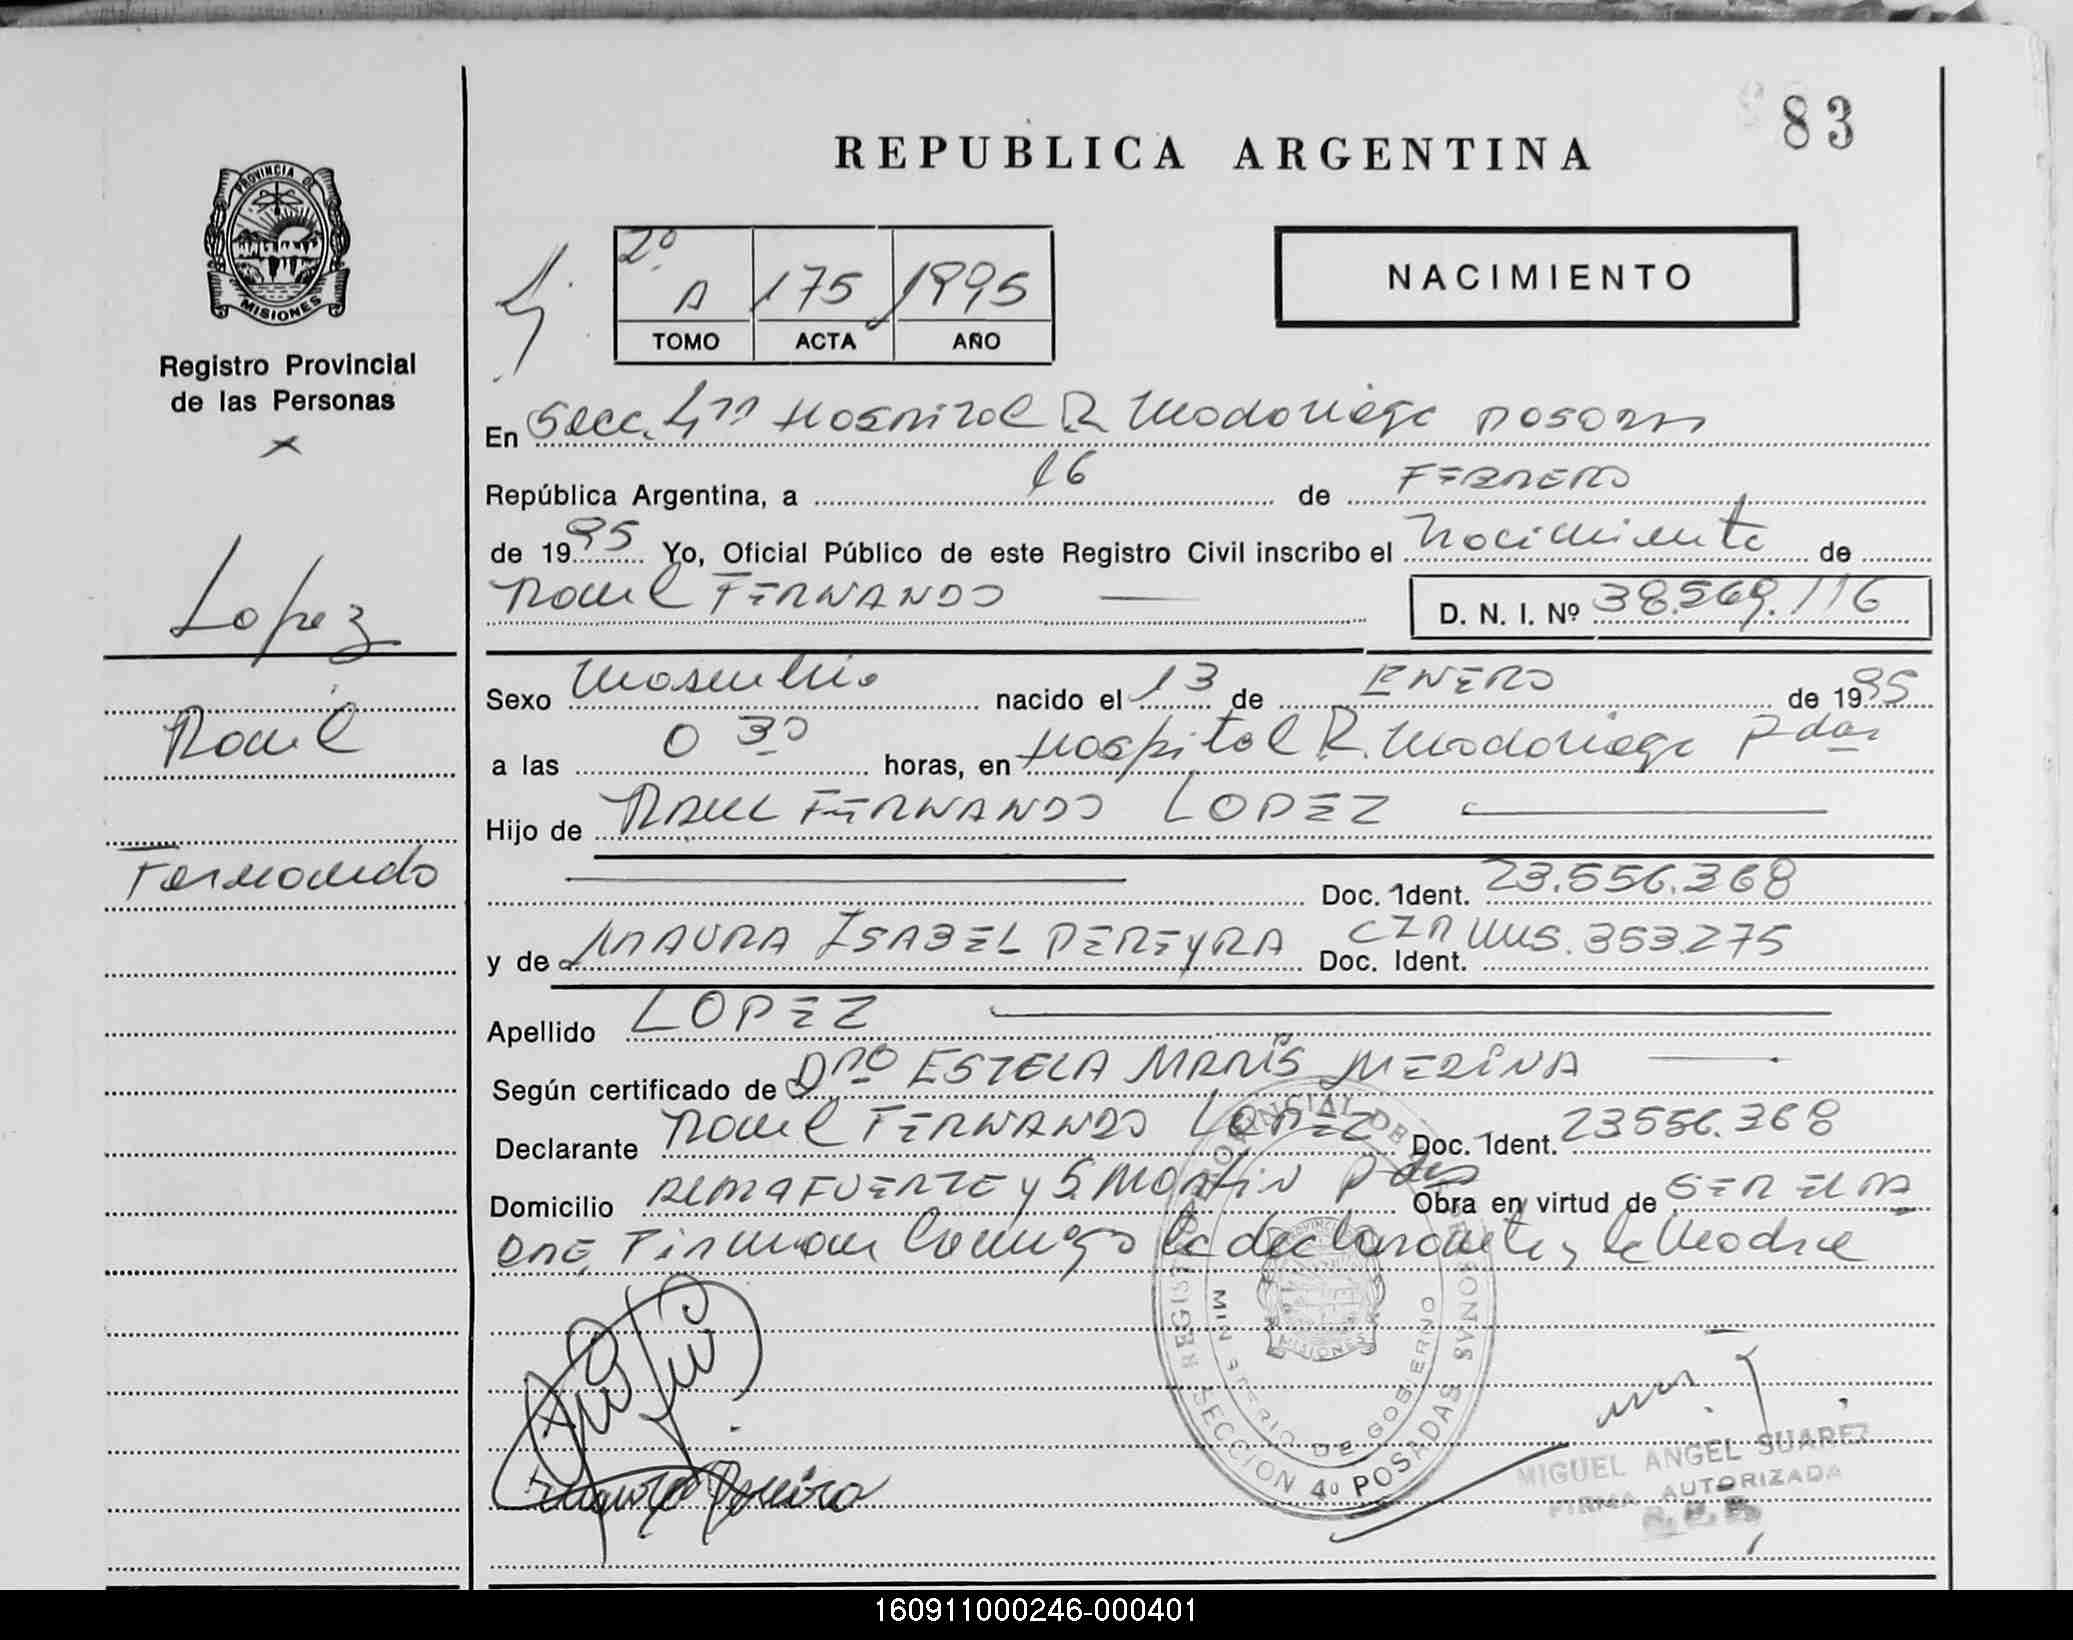 83
REPUBLICA ARGENTINA
PROVINCIA DE
MISIONES
Registro Provincial
de las Personas
2º A 175 1995
TOMO ACTA AÑO
NACIMIENTO
En Secc. 4ta Hospital R Madariaga Posadas
República Argentina, a 16 de FEBRERO
de 1995 Yo, Oficial Público de este Registro Civil inscribo el Nacimiento de
Raul FERNANDO D. N. I. Nº 38.569.116
Lopez
Raul
Fernando
Sexo Masculino nacido el 13 de ENERO de 1995
a las 0 30 horas, en Hospital R. Madariaga Pdas
Hijo de RAUL FERNANDO LOPEZ
Doc. Ident. 23.556.368
y de MAURA ISABEL PEREYRA Doc. Ident. 353.275
Apellido LOPEZ
Según certificado de Dra ESTELA MARIS MEDINA
Declarante Raul FERNANDO LOPEZ Doc. Ident. 23556.368
Domicilio y S. Martin Pdas Obra en virtud de SER EL
PRE, Firman Conmigo el declarante y la Madre
REGISTRO PROVINCIAL DE LAS PERSONAS
MINISTERIO DE GOBIERNO
MISIONES
SECCION 4º POSADAS
MIGUEL ANGEL SUAREZ
FIRMA AUTORIZADA
160911000246-000401